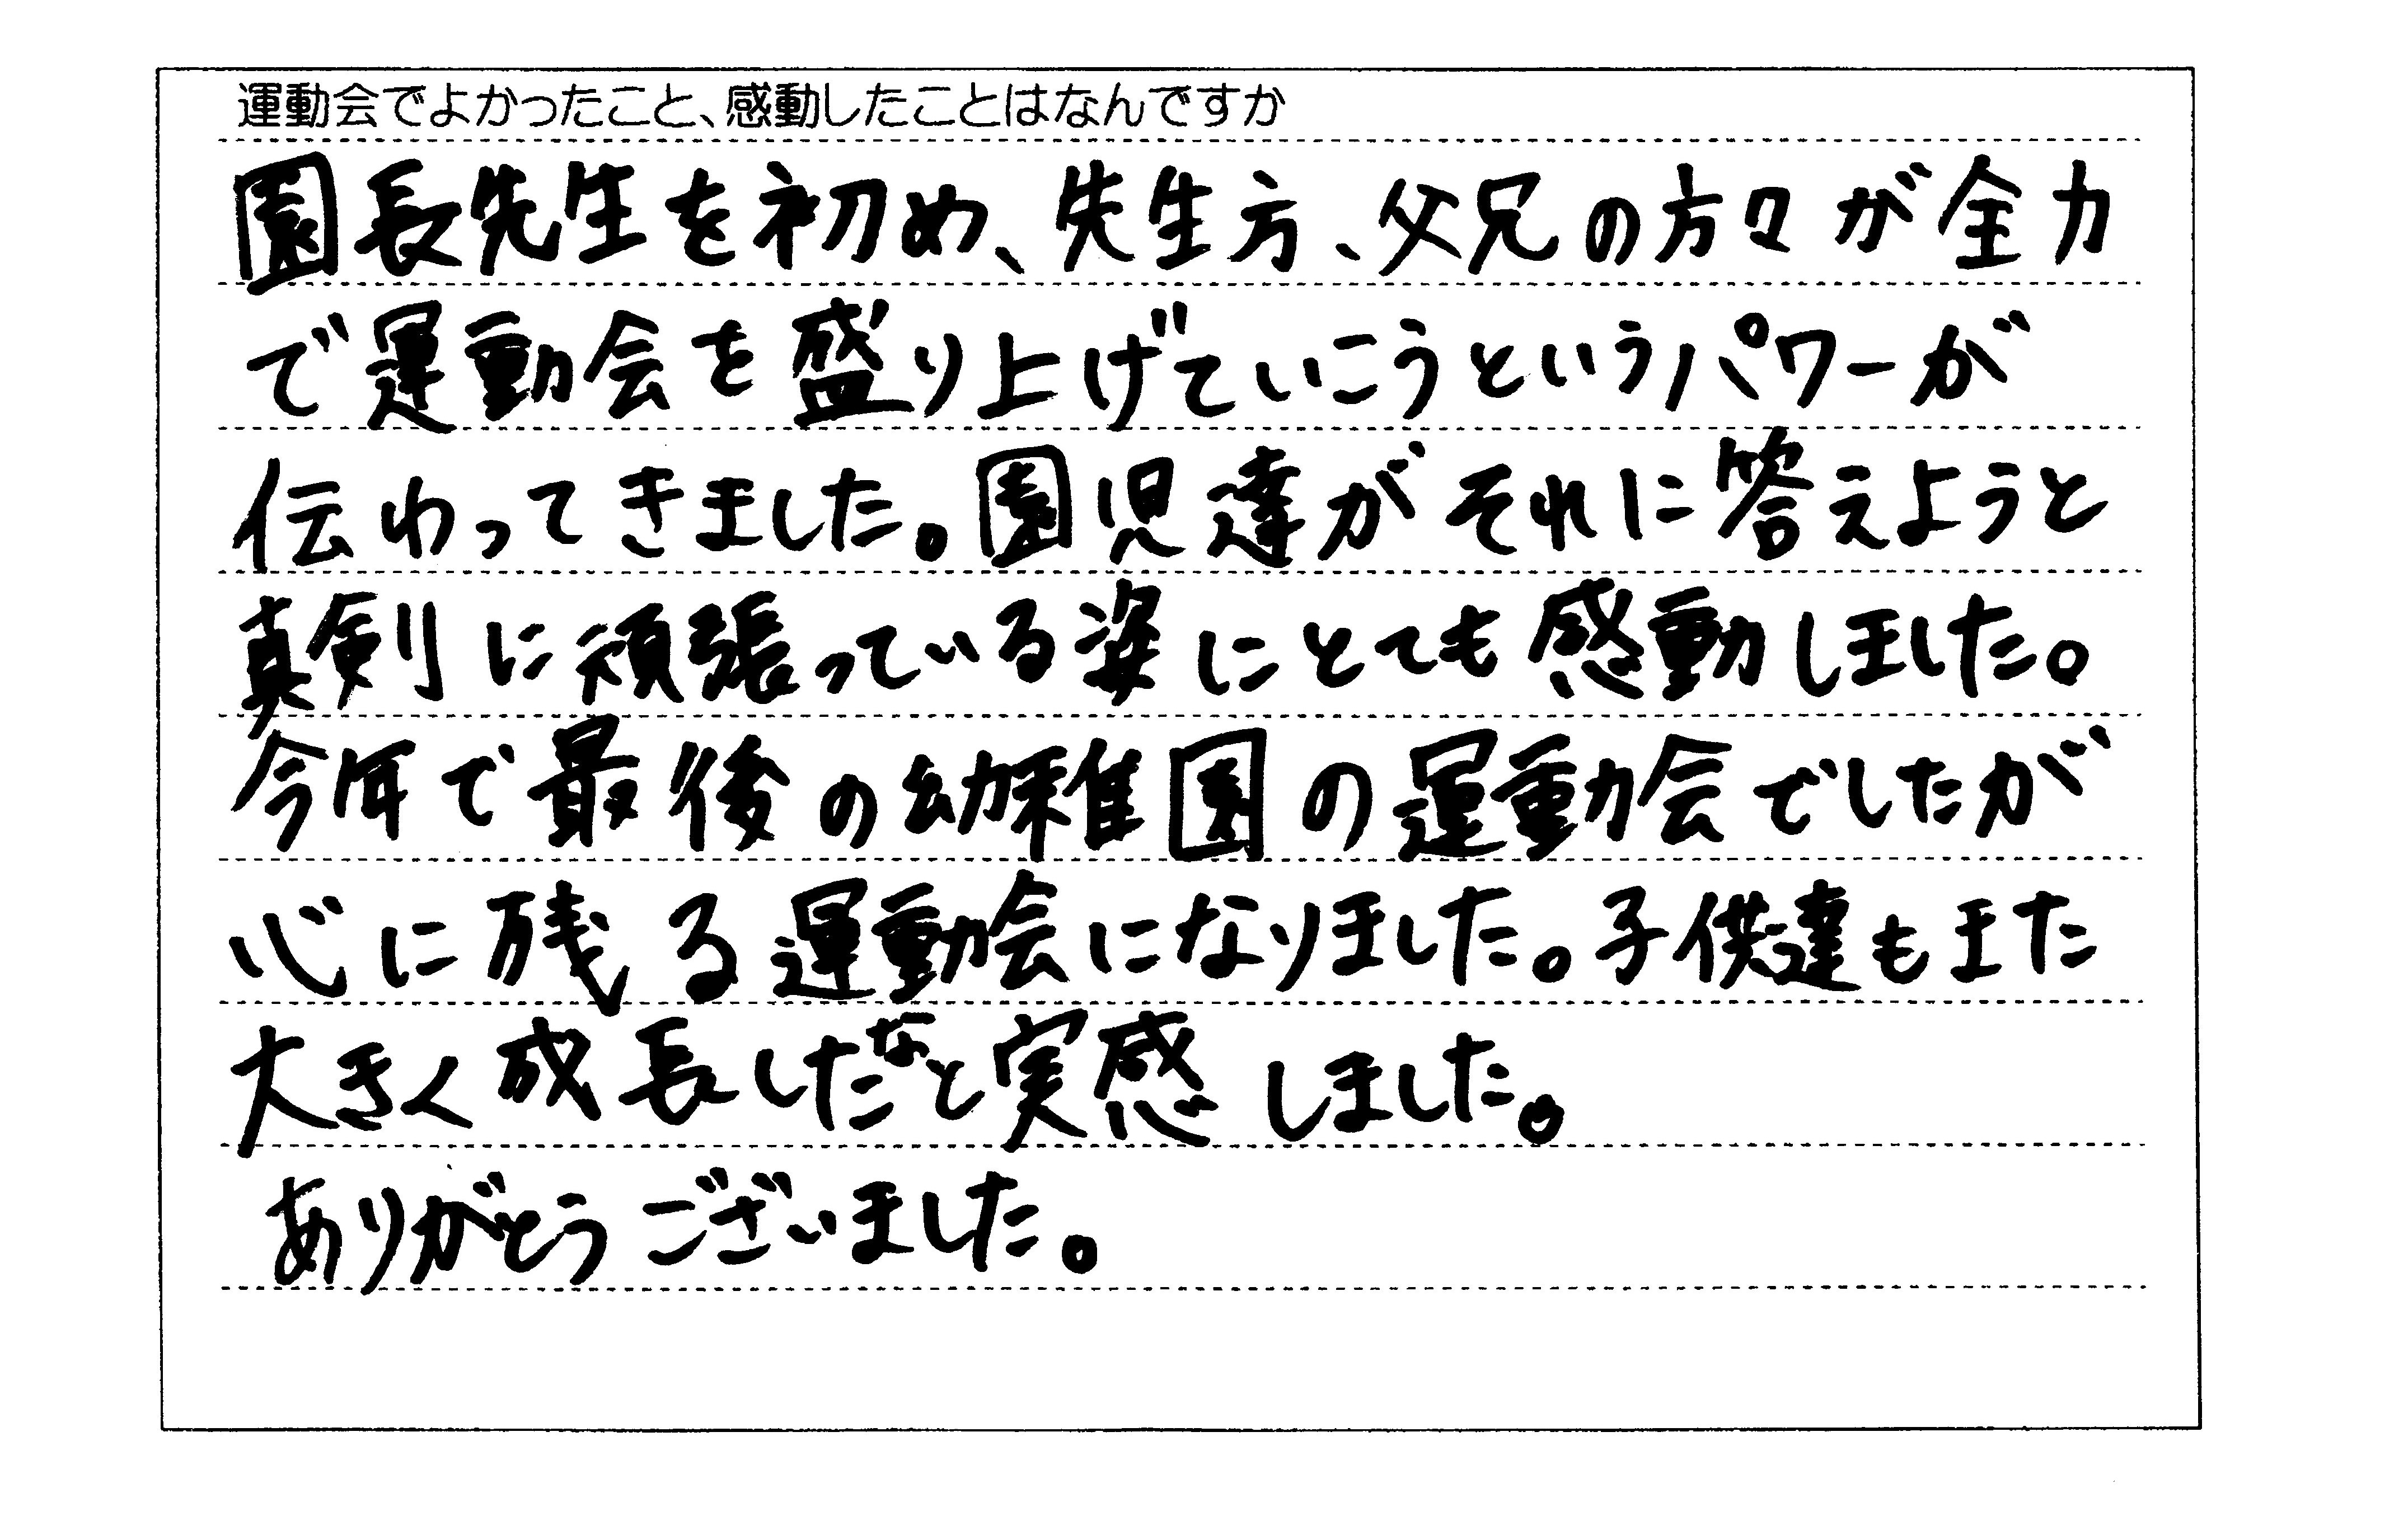 運動会でよかったこと、感動したことはなんですか
園長先生を初め、先生方、父兄の方々が全力
で運動会を盛り上げていこうというパワーが
伝わってきました。園児達がそれに答えようと
真剣に頑張っている姿にとても感動しました。
今年で最後の幼稚園の運動会でしたが
心に残る運動会になりました。子供達もまた
大きく成長したなと実感しました。
ありがとうございました。